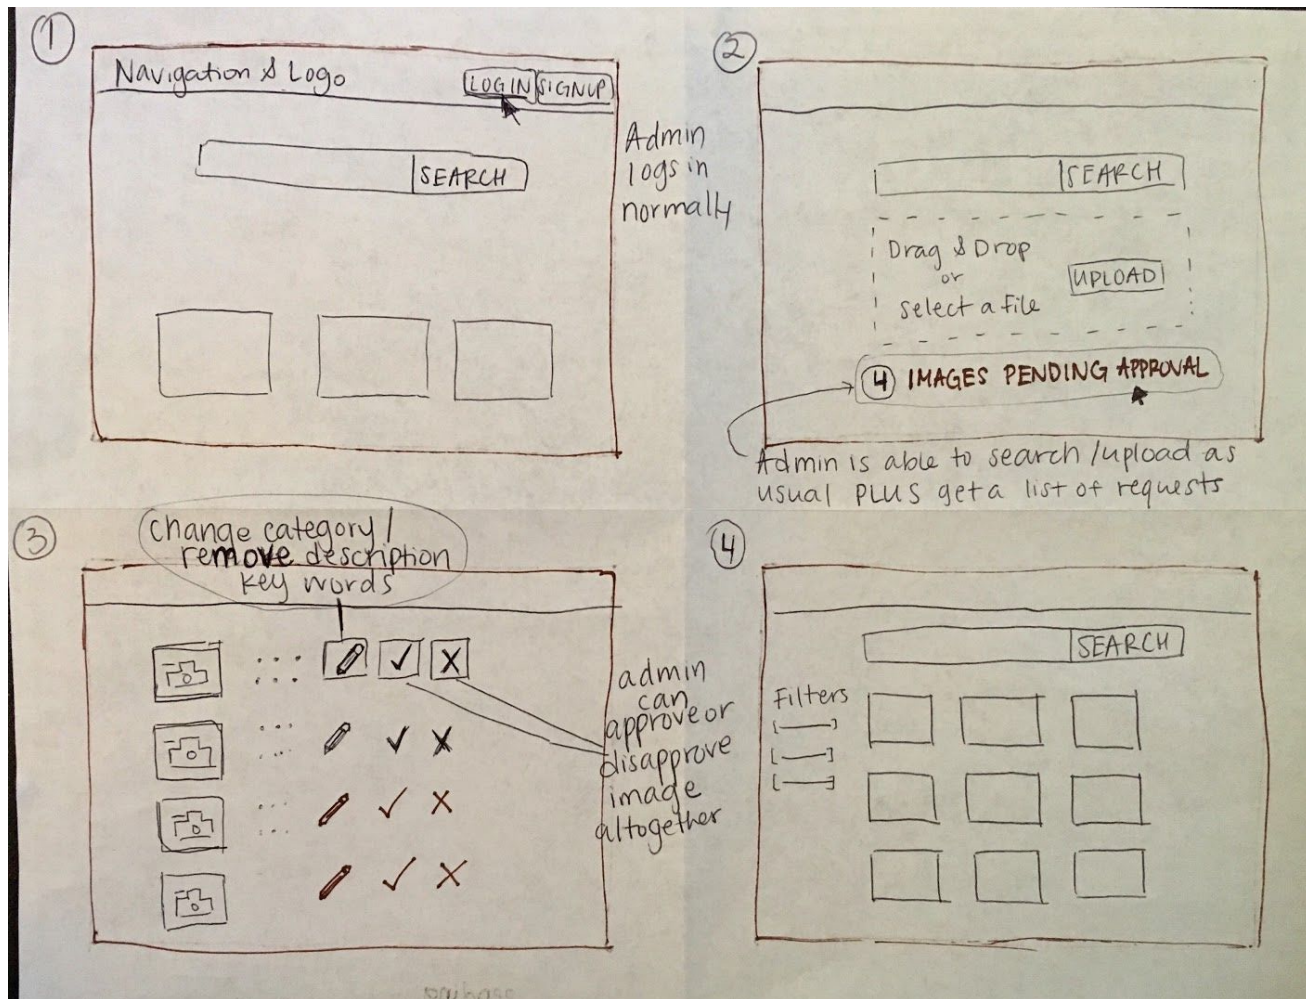 1
Navigation & Logo
LOGIN
SIGNUP
SEARCH
Admin
logs in
normally
2
SEARCH
Drag & Drop
or
select a file
UPLOAD
4 IMAGES PENDING APPROVAL
Admin is able to search/upload as
usual PLUS get a list of requests
3
change category/
remove description
key words
admin
can
approve or
disapprove
image
altogether
4
SEARCH
Filters